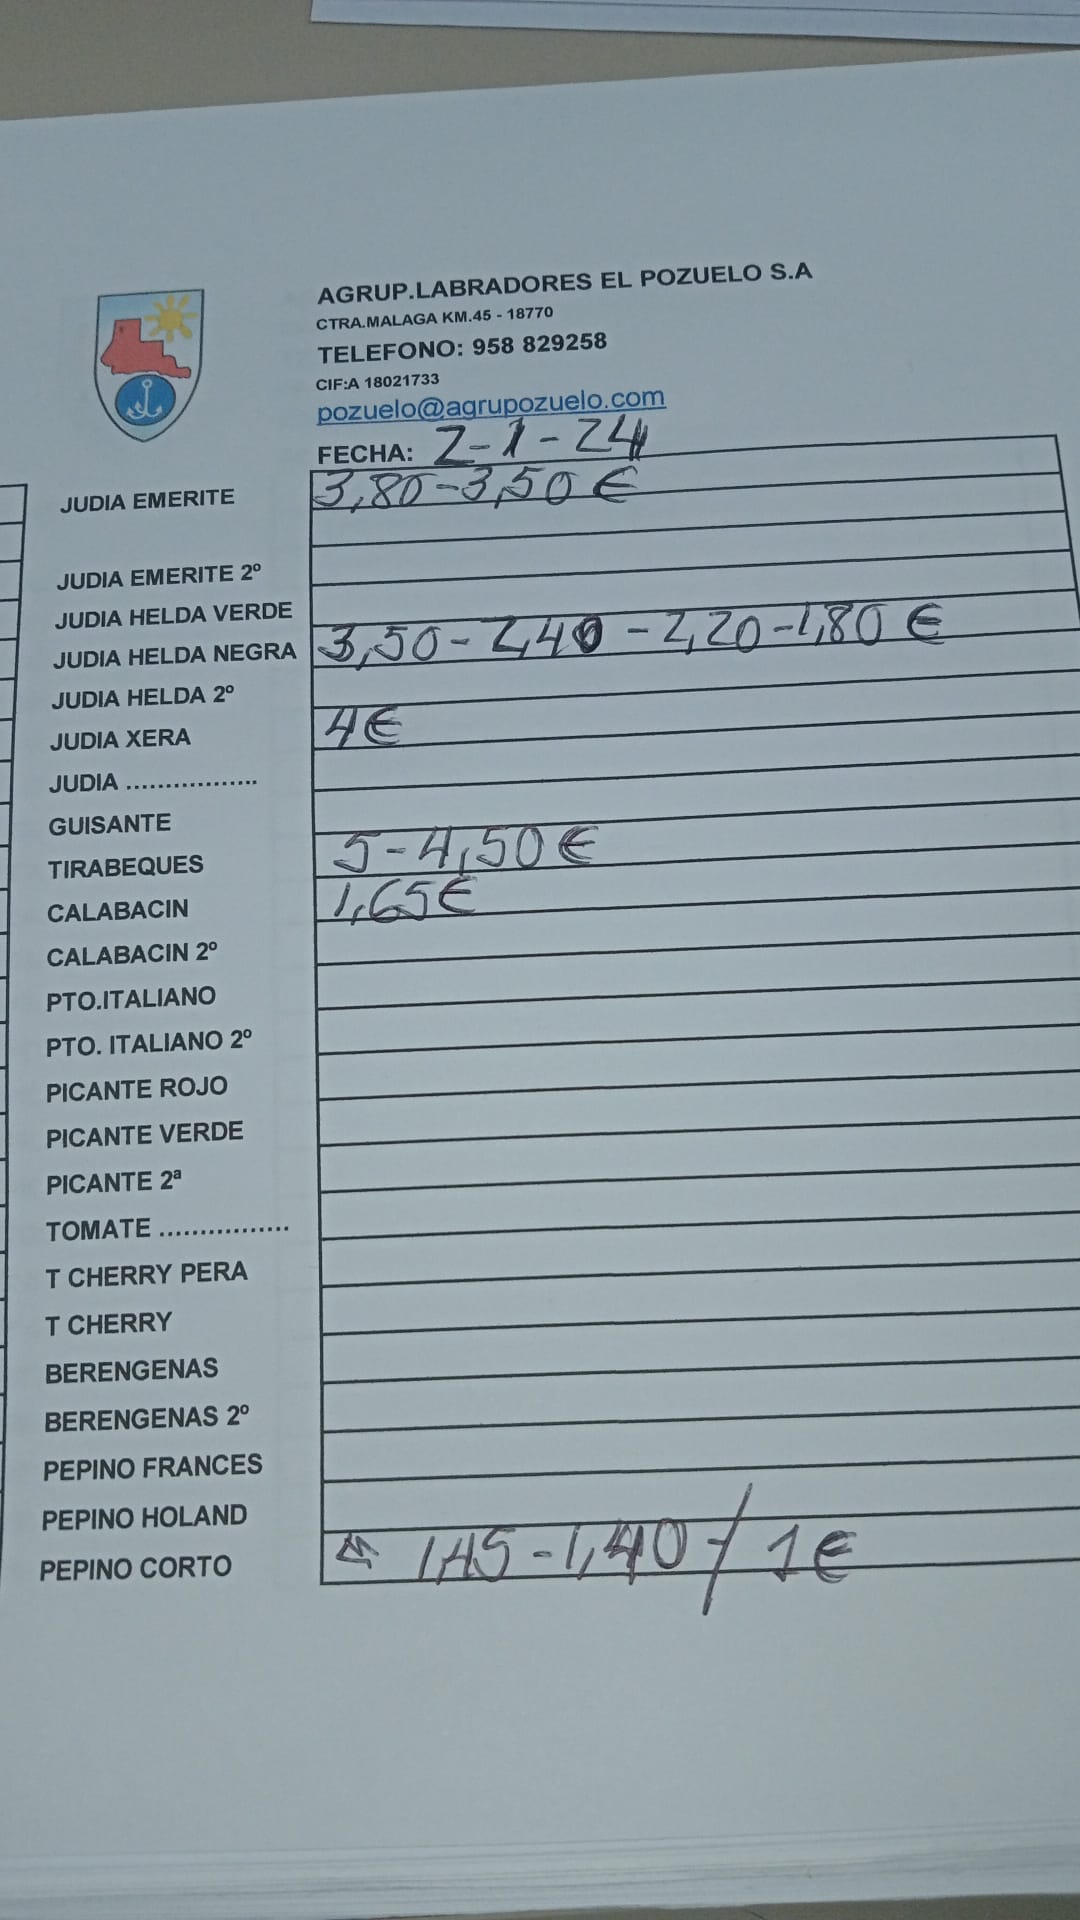 AGRUP.LABRADORES EL POZUELO S.A
CTRA.MALAGA KM.45 - 18770
TELEFONO: 958 829258
CIF:A 18021733
pozuelo@agrupozuelo.com
FECHA: 2-1-24
JUDIA EMERITE 3,80-3,50 €
JUDIA EMERITE 2º
JUDIA HELDA VERDE
JUDIA HELDA NEGRA 3,50-2,40-2,20-1,80 €
JUDIA HELDA 2º
JUDIA XERA 4€
JUDIA .................
GUISANTE
TIRABEQUES 5-4,50€
CALABACIN 1,65€
CALABACIN 2º
PTO.ITALIANO
PTO. ITALIANO 2º
PICANTE ROJO
PICANTE VERDE
PICANTE 2ª
TOMATE ................
T CHERRY PERA
T CHERRY
BERENGENAS
BERENGENAS 2º
PEPINO FRANCES
PEPINO HOLAND
PEPINO CORTO 1,45-1,40 / 1€